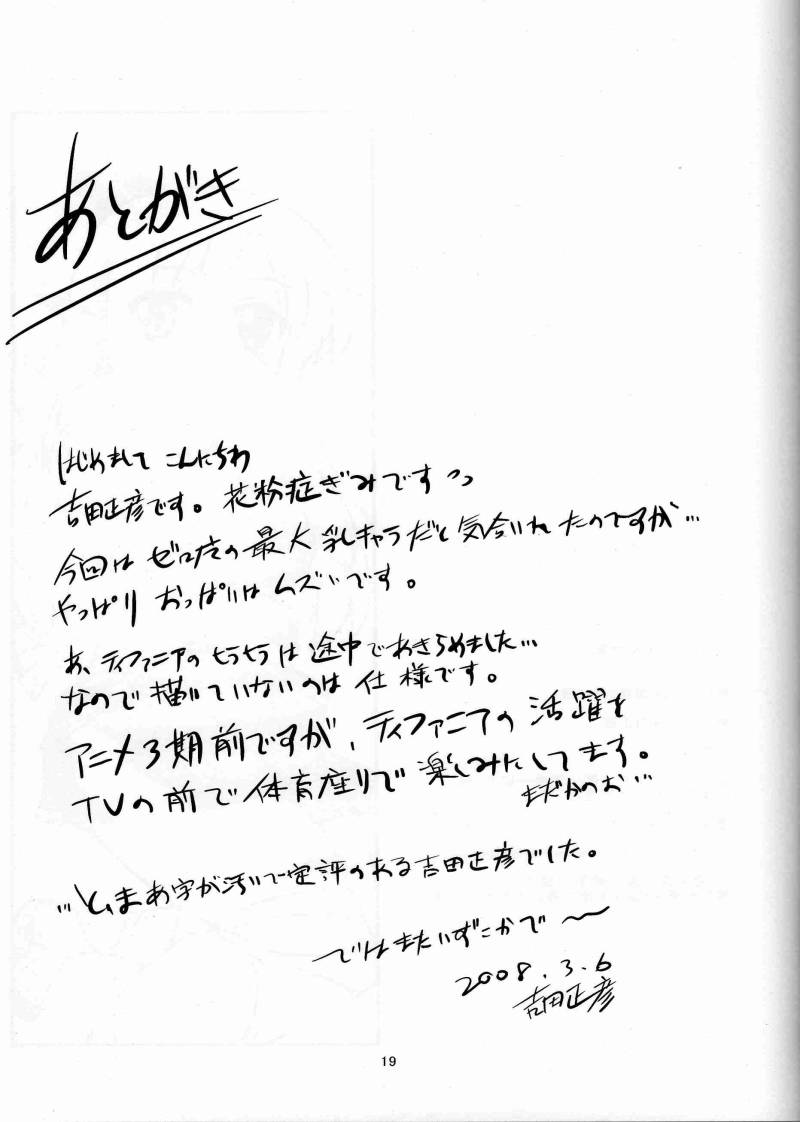 あとがき
はじめまして こんにちわ
吉田正彦です。花粉症ぎみですっつ
今回は ゼロ魔の最大 乳キャラだと気合いれたのですが…
やっぱり おっぱいは ムズいです。
あ、ティファニアのヒラヒラは 途中であきらめました…
なので描いていないのは 仕様です。
アニメ3期前ですが、ティファニアの 活躍を
TVの前で体育座りで楽しみにしてます。
まだかのお…
…と、まあ字が汚いで定評のある吉田正彦でした。
ではまたいずこかで～
2008.3.6
吉田正彦
19